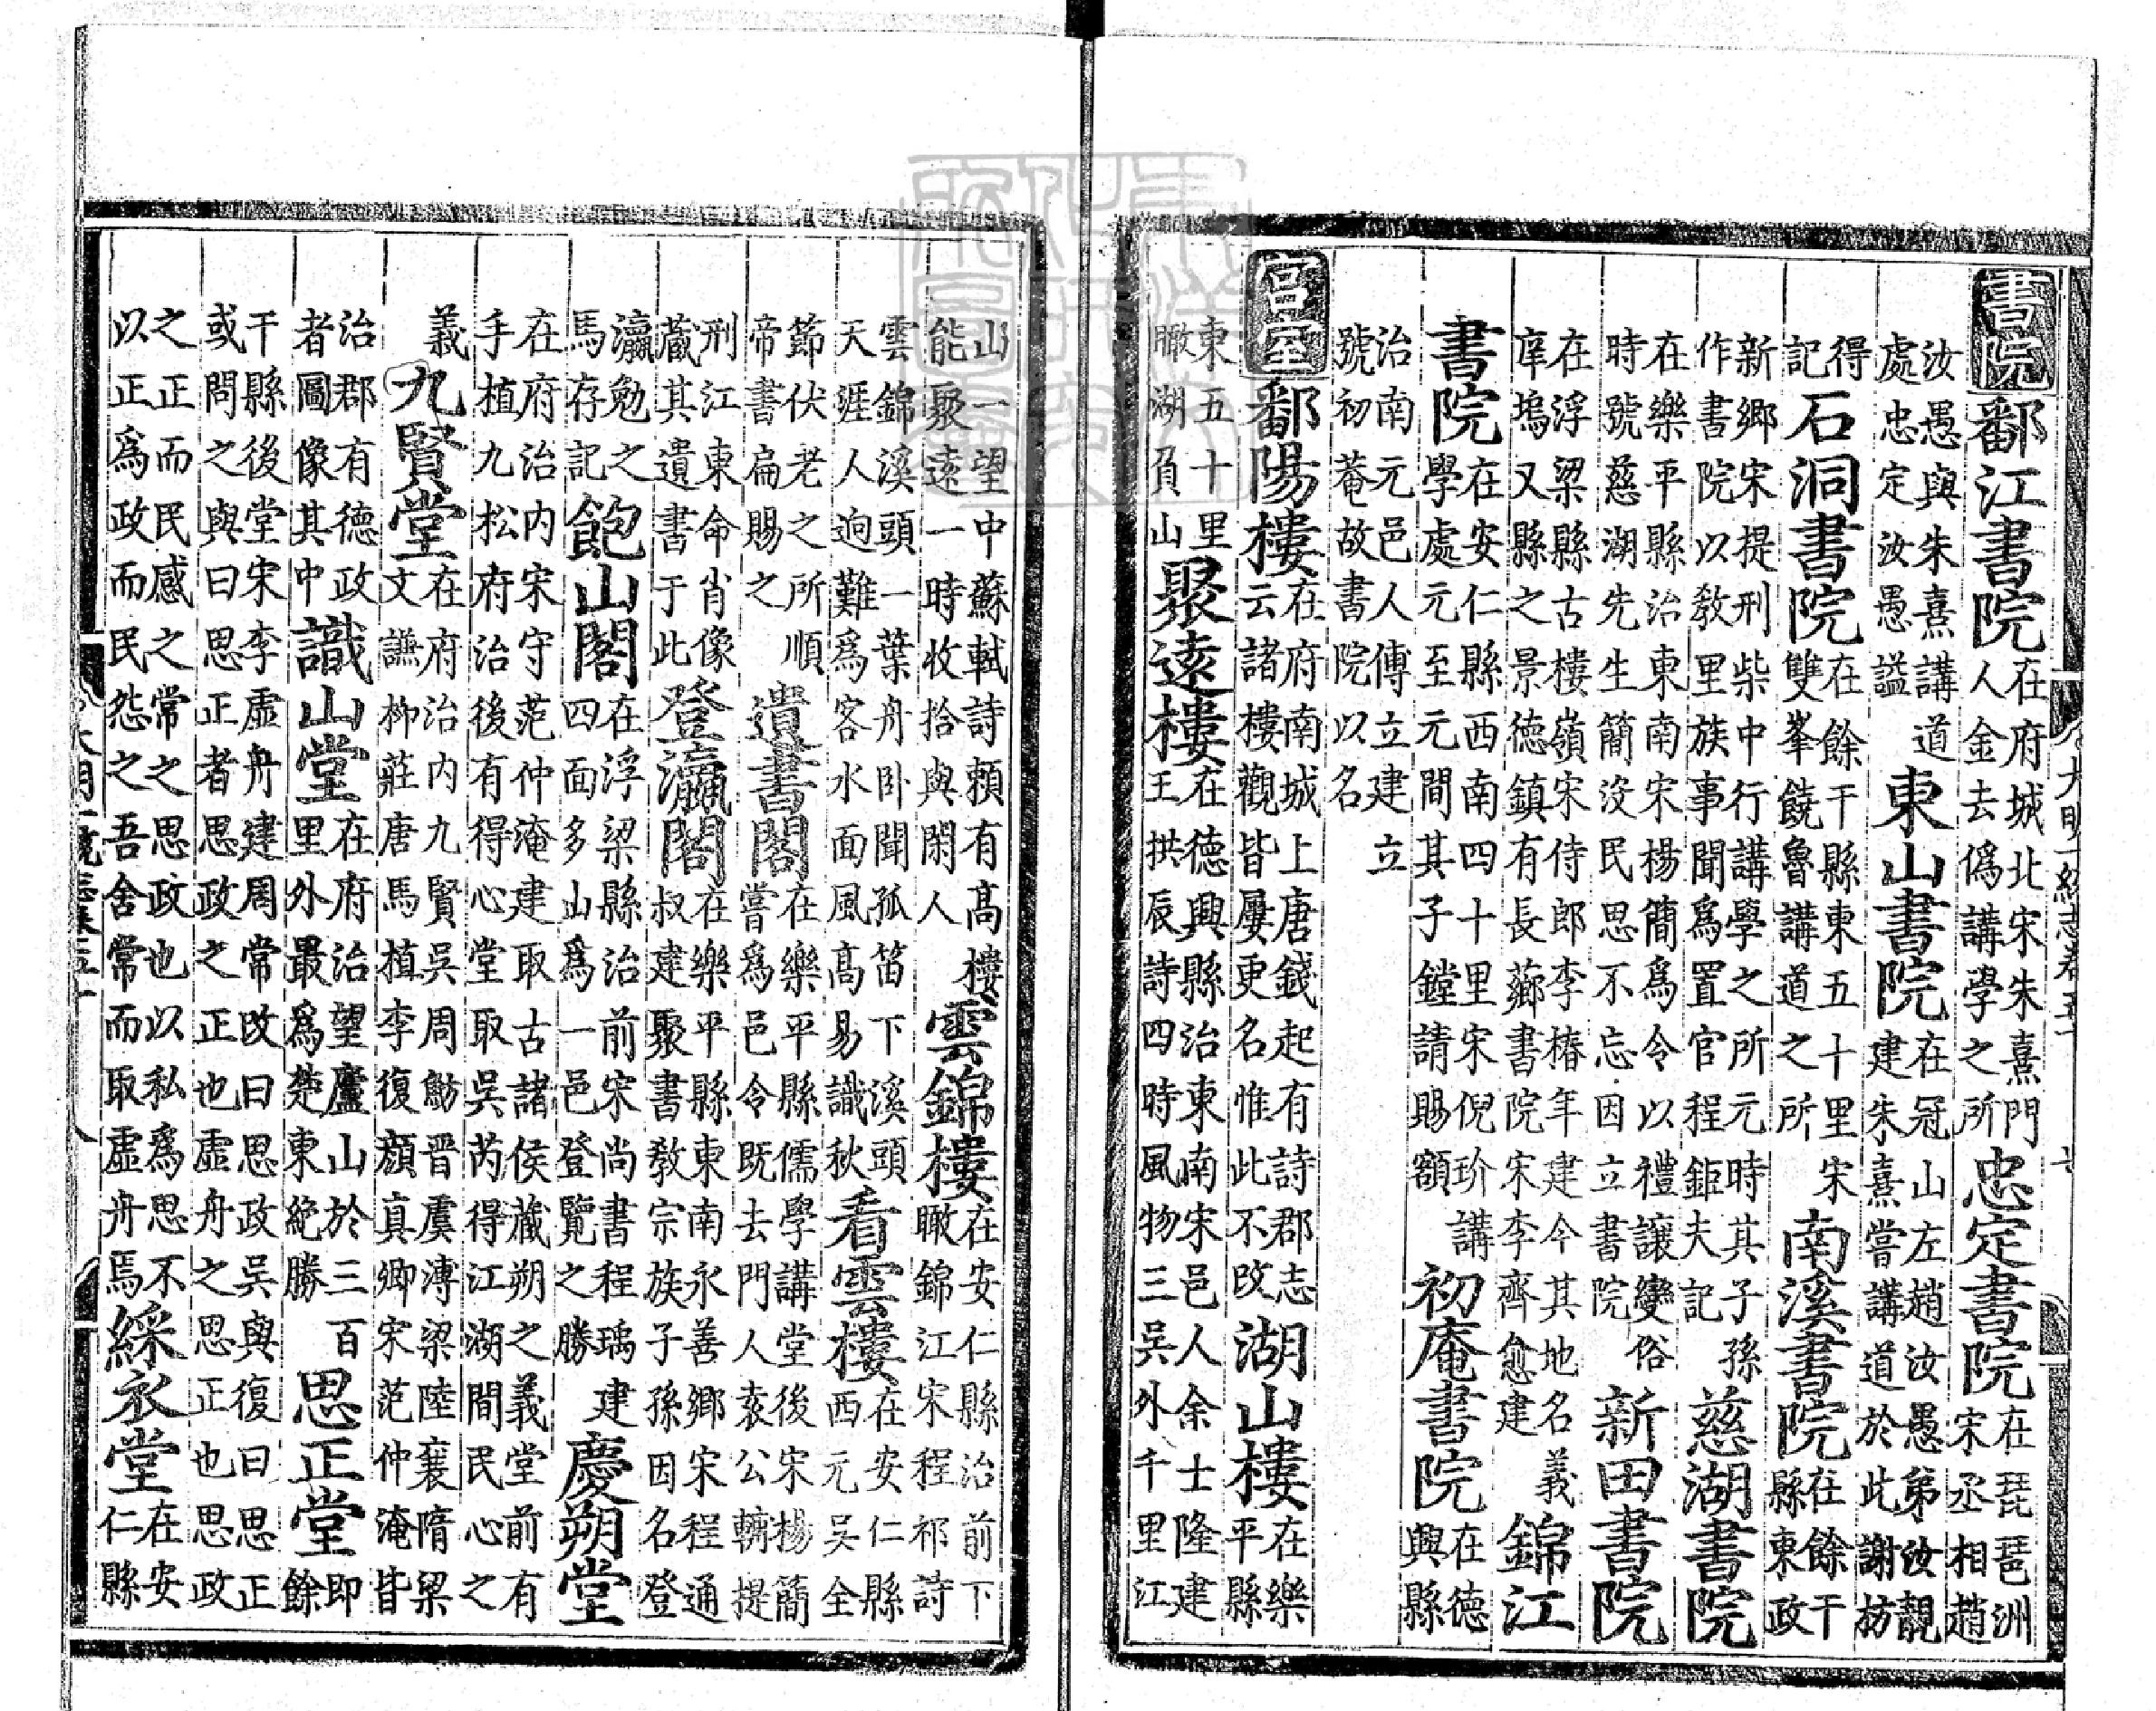 書院鄱江書院在府城北宋朱熹門人金去偽講學之所忠定書院在琵琶洲宋丞相趙
汝愚與朱熹講道處忠定汝愚謚東山書院在冠山左趙汝愚弟汝靚建朱熹嘗講道於此謝枋
得記石洞書院在餘干縣東五十里宋雙峯饒魯講道之所南溪書院在餘干縣東政
新鄉宋提刑柴中行講學之所元時其子孫作書院以教里族事聞爲置官程鉅夫記慈湖書院
在樂平縣治東南宋楊簡爲令以禮讓變俗時號慈湖先生簡没民思不忘因立書院新田書院
在浮梁縣古樓嶺宋侍郎李椿年建今其地名義庠塢又縣之景德鎮有長薌書院宋李齊愈建錦江
書院在安仁縣西南四十里宋倪玠講學處元至元間其子鏜請賜額初庵書院在德興縣
治南元邑人傅立建立號初菴故書院以名
宫室鄱陽樓在府南城上唐錢起有詩郡志云諸樓觀皆屢更名惟此不改湖山樓在樂平縣
東五十里瞰湖負山聚遠樓在德興縣治東南宋邑人余士隆建王拱辰詩四時風物三吴外千里江
山一望中蘇軾詩賴有高樓能聚遠一時收拾與閑人雲錦樓在安仁縣治前下瞰錦江宋程祁詩
雲錦溪頭一葉舟卧聞孤笛下溪頭天涯人逈難爲客水面風高易識秋看雲樓在安仁縣西元吴全
節伏老之所順帝書扁賜之遺書閣在樂平縣儒學講堂後宋楊簡嘗爲邑令既去門人袁公轉提
刑江東命肖像藏其遺書于此登瀛閣在樂平縣東南永善鄉宋程通叔建聚書教宗族子孫因名登
瀛勉之馬存記飽山閣在浮梁縣治前宋尚書程瑀建四面多山爲一邑登覽之勝慶朔堂
在府治内宋守范仲淹建取古諸侯藏朔之義堂前有手植九松府治後有得心堂取吴芮得江湖間民心之
義九賢堂在府治内九賢吴周魴晋虞溥梁陸襄隋梁文謙柳莊唐馬植李復顔真卿宋范仲淹皆
治郡有德政者圖像其中識山堂在府治望廬山於三百里外最爲楚東絶勝思正堂即餘
干縣後堂宋李虚舟建周常改曰思政吴與復曰思正或問之與曰思正者思政之正也虚舟之思正也思政
之正而民感之常之思政也以私爲思不以正爲政而民怨之吾舍常而取虚舟焉綵衣堂在安仁縣